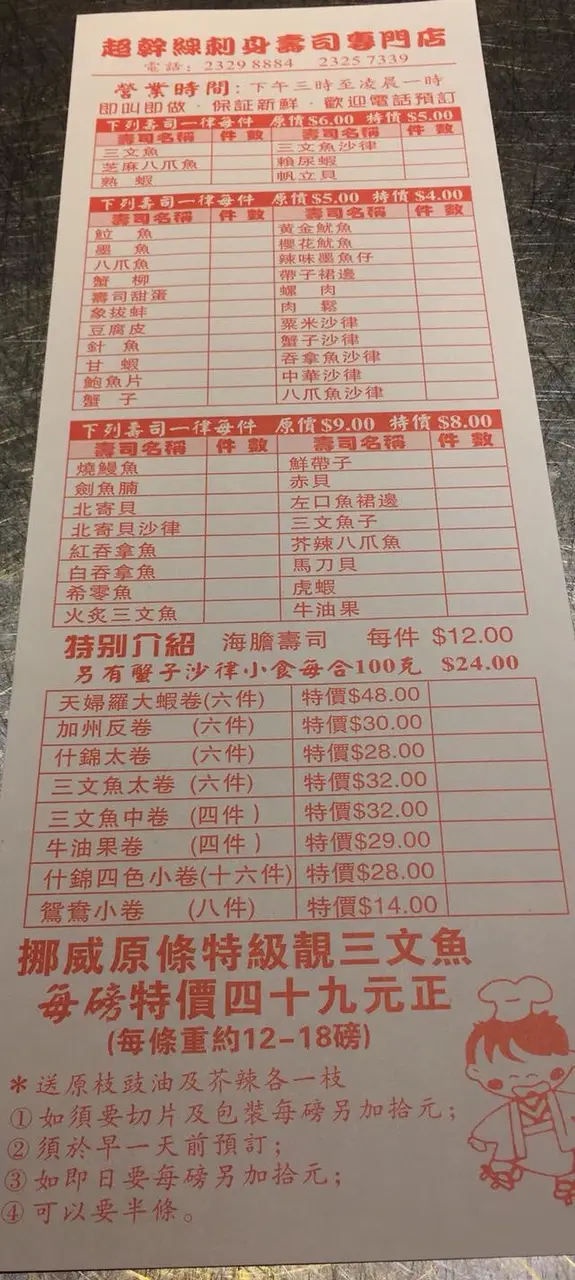 超幹線刺身壽司專門店
電話：2329 8884　2325 7339
營業時間：下午三時至凌晨一時
即叫即做．保証新鮮．歡迎電話預訂
下列壽司一律每件　原價$6.00　特價$5.00
壽司名稱　件數　壽司名稱　件數
三文魚　三文魚沙律
芝麻八爪魚　賴尿蝦
熟　蝦　帆立貝
下列壽司一律每件　原價$5.00　特價$4.00
壽司名稱　件數　壽司名稱　件數
魚　黃金魷魚
墨　魚　櫻花魷魚
八爪魚　辣味墨魚仔
蟹　柳　帶子裙邊
壽司甜蛋　螺　肉
象拔蚌　肉　鬆
豆腐皮　粟米沙律
針　魚　蟹子沙律
甘　蝦　吞拿魚沙律
鮑魚片　中華沙律
蟹　子　八爪魚沙律
下列壽司一律每件　原價$9.00　特價$8.00
壽司名稱　件數　壽司名稱　件數
燒鰻魚　鮮帶子
劍魚腩　赤貝
北寄貝　左口魚裙邊
北寄貝沙律　三文魚子
紅吞拿魚　芥辣八爪魚
白吞拿魚　馬刀貝
希零魚　虎蝦
火炙三文魚　牛油果
特別介紹　海膽壽司　每件 $12.00
另有蟹子沙律小食每合100克　$24.00
天婦羅大蝦卷(六件)　特價$48.00
加州反卷　(六件)　特價$30.00
什錦太卷　(六件)　特價$28.00
三文魚太卷 (六件)　特價$32.00
三文魚中卷 (四件)　特價$32.00
牛油果卷　(四件)　特價$29.00
什錦四色小卷(十六件)　特價$28.00
鴛鴦小卷　(八件)　特價$14.00
挪威原條特級靚三文魚
每磅特價四十九元正
(每條重約12-18磅)
＊送原枝豉油及芥辣各一枝
①如須要切片及包裝每磅另加拾元；
②須於早一天前預訂；
③如即日要每磅另加拾元；
④可以要半條。